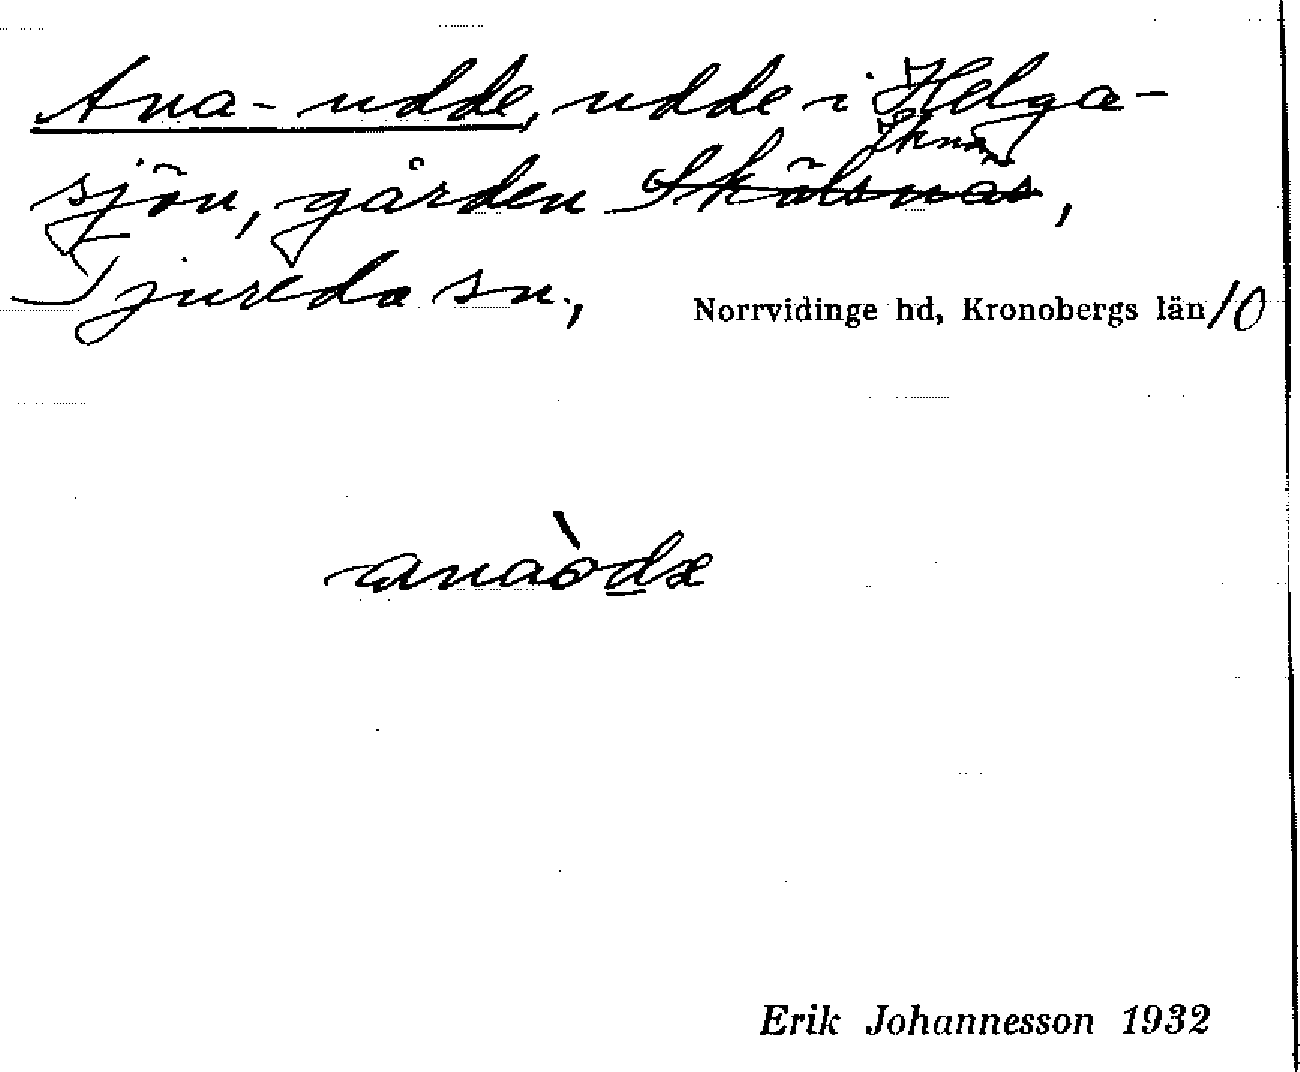 Ana-udde, udde i Helga-
sjön, gården Skälsnäs,
Tjureda sn., Norrvidinge hd, Kronobergs län/0
anaòdæ
Erik Johannesson 1932